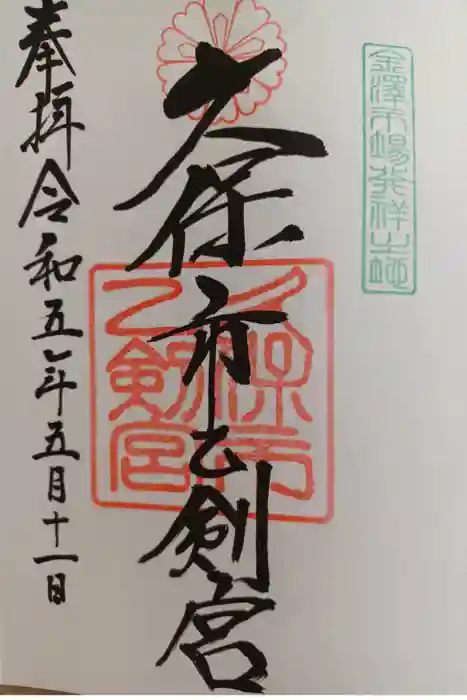 金澤市場発祥之地
久保市乙剣宮
久保市
乙剣宮
奉拝 令和五年五月十一日